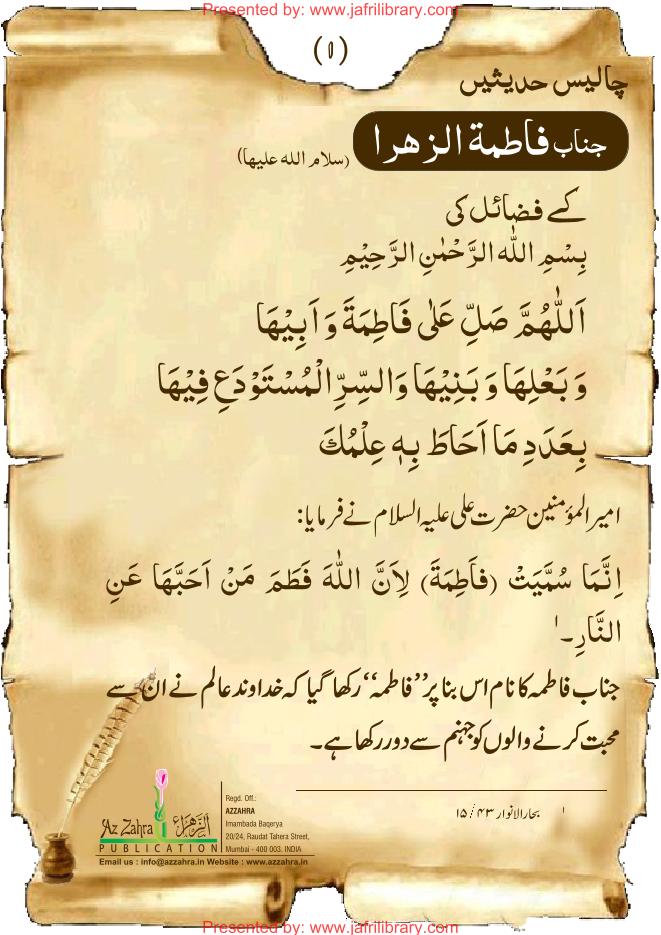 Presented by: www.jafrilibrary.com
(۱)
چالیس حدیثیں
جناب فاطمة الزهرا (سلام الله علیها)
کے فضائل کی
بِسْمِ اللهِ الرَّحْمٰنِ الرَّحِیْمِ
اَللّٰهُمَّ صَلِّ عَلٰی فَاطِمَةَ وَ اَبِیْهَا
وَ بَعْلِهَا وَ بَنِیْهَا وَالسِّرِّ الْمُسْتَوْدَعِ فِیْهَا
بِعَدَدِ مَا اَحَاطَ بِهٖ عِلْمُكَ
امیر المؤمنین حضرت علی علیہ السلام نے فرمایا:
اِنَّمَا سُمَّیَتْ (فَاطِمَةَ) لِاَنَّ اللهَ فَطَمَ مَنْ اَحَبَّهَا عَنِ
النَّارِ۔ ۱
جناب فاطمہ کا نام اس بنا پر ’’فاطمہ‘‘ رکھا گیا کہ خداوند عالم نے ان سے
محبت کرنے والوں کو جہنم سے دور رکھا ہے۔
۱ بحار الانوار ۴۳/ ۱۵
Az Zahra الزهراء
PUBLICATION
Regd. Off.:
AZZAHRA
Imambada Baqerya
20/24, Raudat Tahera Street,
Mumbai - 400 003. INDIA
Email us : info@azzahra.in Website : www.azzahra.in
Presented by: www.jafrilibrary.com